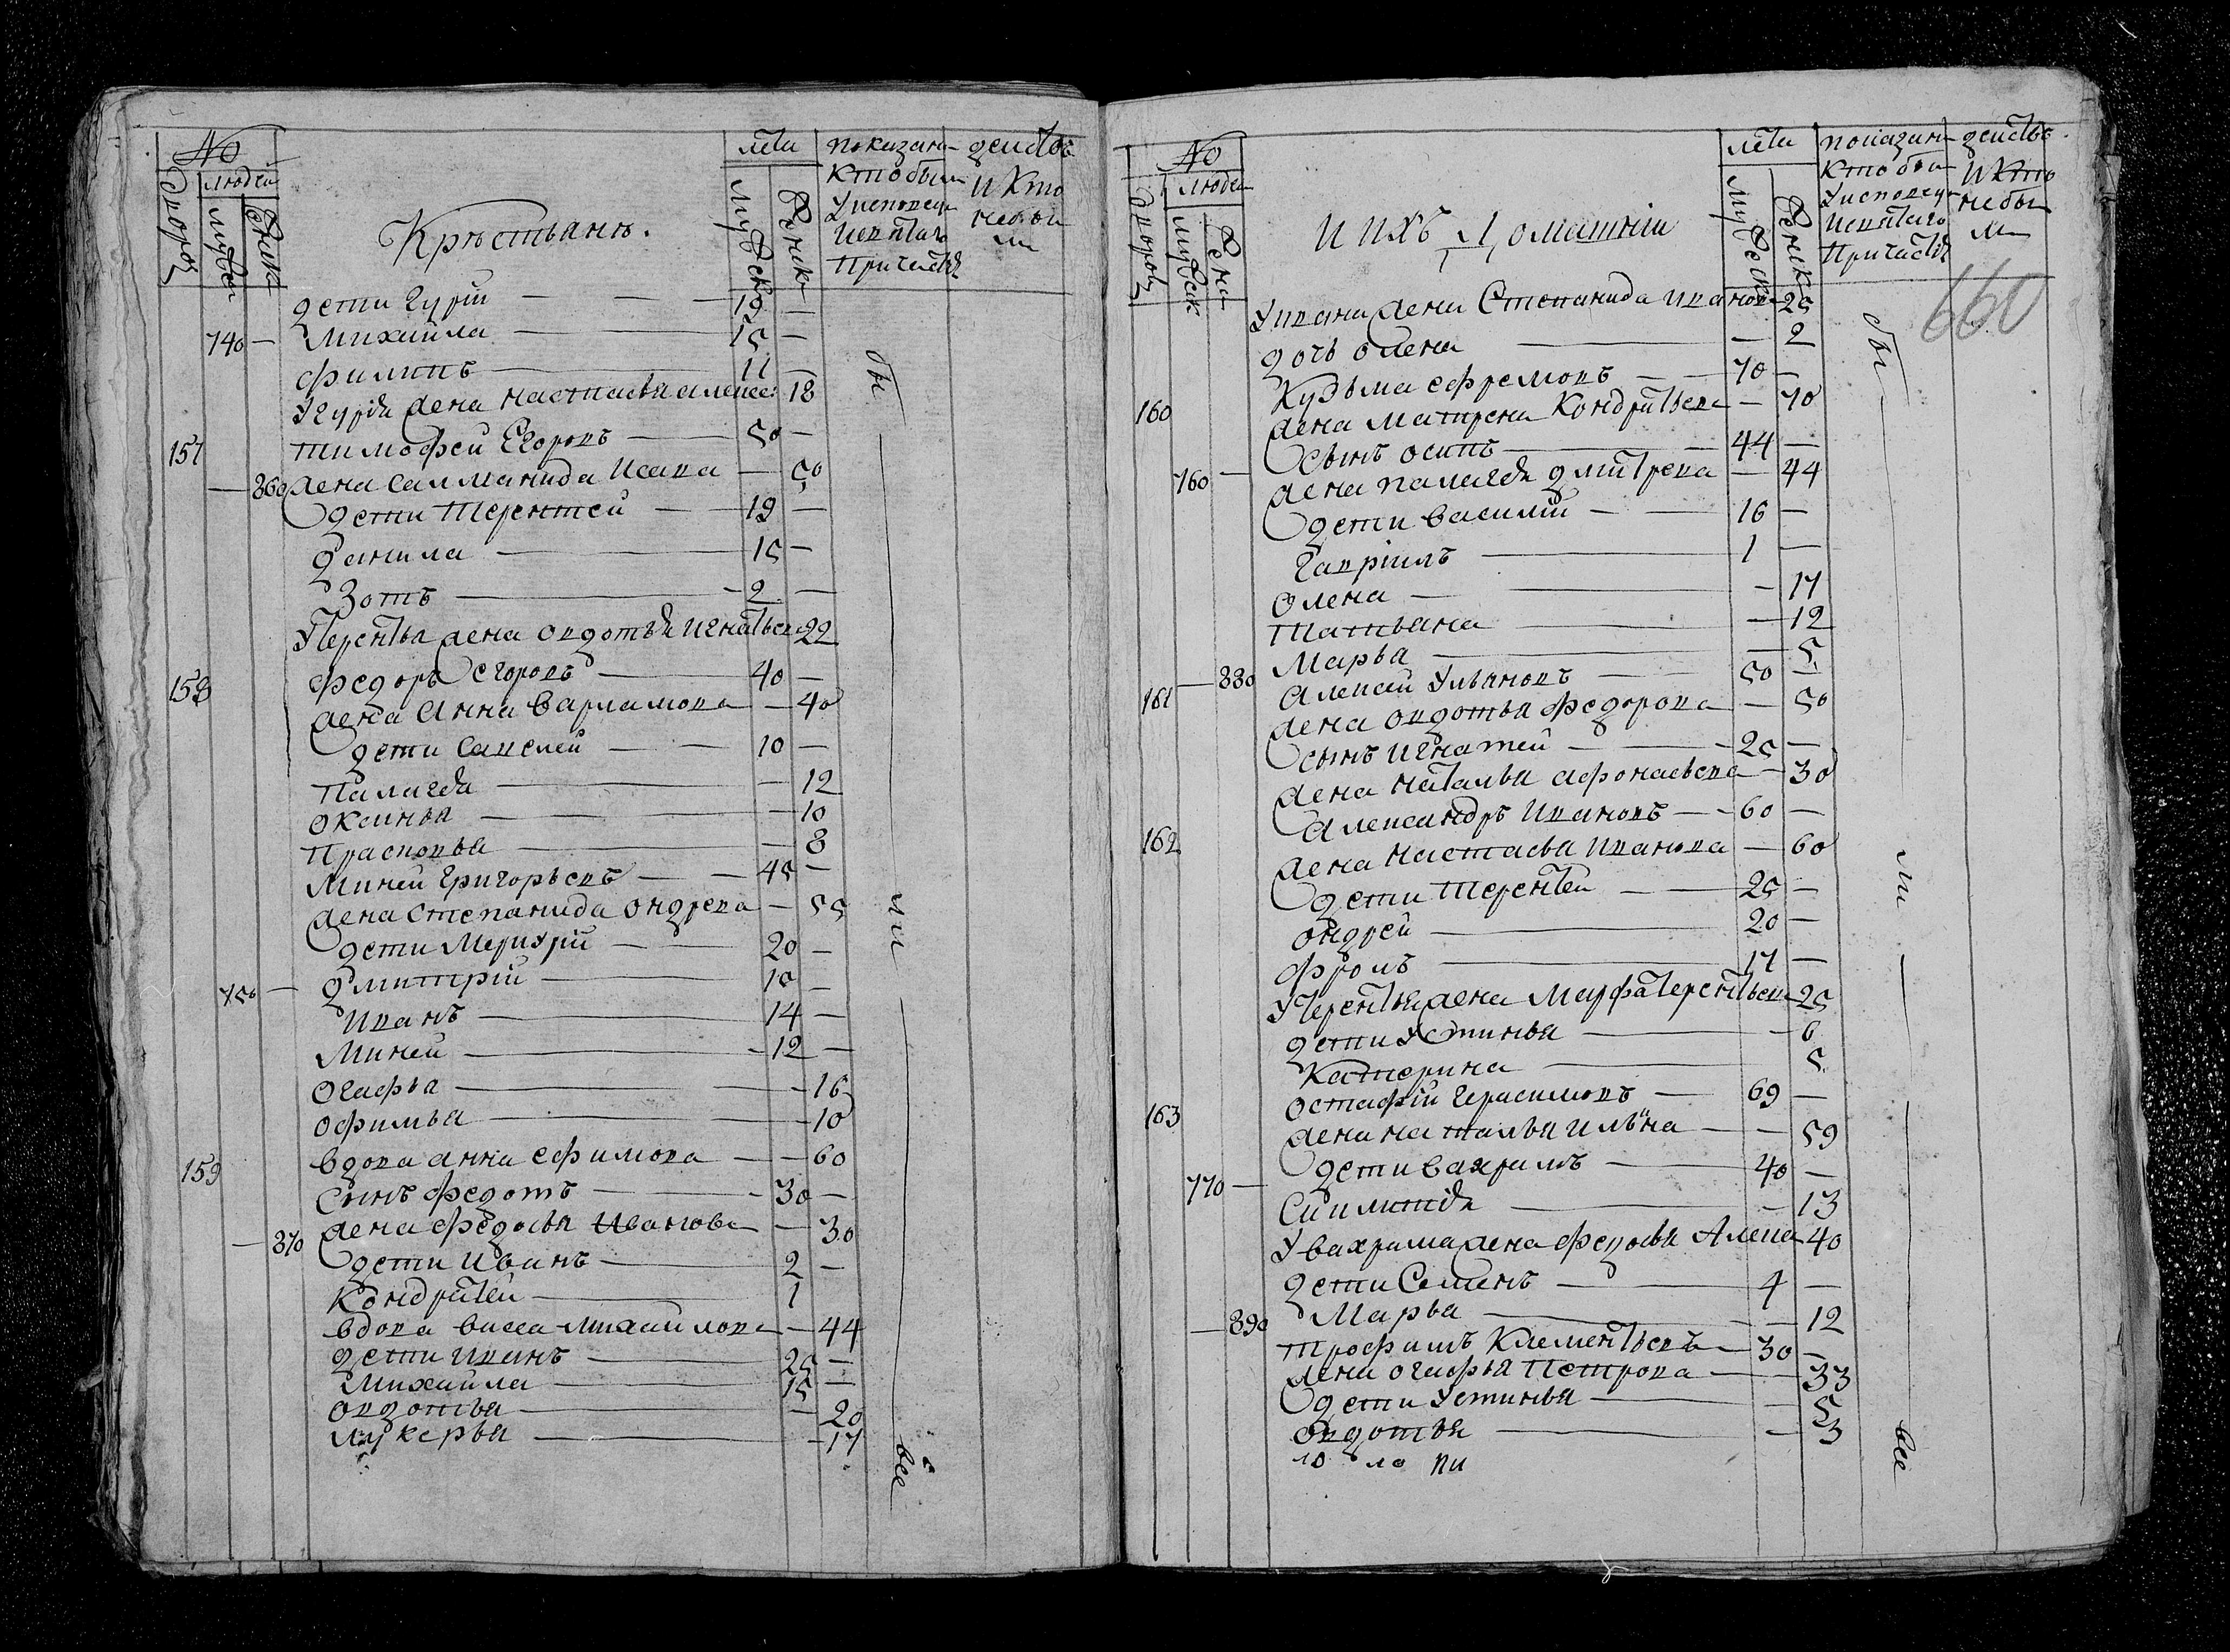 № лета показани действ
дворов людей мужеск женска Крѣстьянѣ. мужеск женска кто был у исповеди и святаго причастія и кто не был ли
дети Гурій — 19 —
740 — Михайла — 15 —
Филипъ — 11 —
У Гурія жена Настасья Алексе: 18
157 Тимофей Егоровъ — 50 —
— 860 жена Саламанида Исаева — 50
дети Терентей — 19 —
Данила — 15 —
Зотъ — 2 —
У Терентья жена Овдотья Игнатьева 22
158 Федоръ Егоровъ — 40 —
жена Анна Варламова — 40
дети Савелей — 10 —
Палагея — 12
Оксинья — 10
Прасковья — 8
Миней Григорьевъ — 45 —
жена Степанида Ондрева — 55
дети Меркурій — 20 —
750 — Дмитрій — 10 —
Иванъ — 14 —
Миней — 12 —
Огафья — 16
Офимья — 10
159 вдова Анна Ефимова — 60
Сынъ Федотъ — 30 —
— 870 жена Федосья Иванова — 30
дети Иванъ — 2 —
Кондратей — 1
вдова Васса Михайлова — 44
дети Иванъ — 25 —
Михайла — 15 —
Овдотья — 20
Лукерья — 17
бы ли все
№ лета показани действ
дворов людей мужеск женск и ихъ домашніи мужеск женск кто был у исповеди и святаго причастія и кто не был ли
660
У Ивана жена Степанида Иванов 25
дочь Олена — 2
160 Кузьма Ефремовъ — 70 —
жена Матрена Кондратьева — 70
сынъ Осипъ — 44 —
760 — жена Палагея Дмитрева — 44
дети Василій — 16 —
Гавріилъ — 1 —
Олена — 17
Татьяна — 12
— 880 Марья — 5
161 Алексей Ульяновъ — 50 —
жена Овдотья Федорова — 50
сынъ Игнатей — 25 —
жена Наталья Афонасьева — 30
162 Александръ Ивановъ — 60 —
жена Настасья Иванова — 60
дети Терентей — 25 —
Ондрей — 20 —
Фролъ — 17 —
У Терентья жена Марфа Терентьева 25
дети Устинья — 6
Катерина — 5
163 Остафій Герасимовъ — 69 —
жена Наталья Ильина — 59
770 — дети Вахрамъ — 40 —
— 13
У Вахрама жена Федосья Алекс 40
дети Семенъ — 4 —
— 890 Марья — 12
Трофимъ Клементьевъ — 30 —
жена Огафья Петрова — 33
дети Устинья — 5
Овдотья — 3
бы ли все